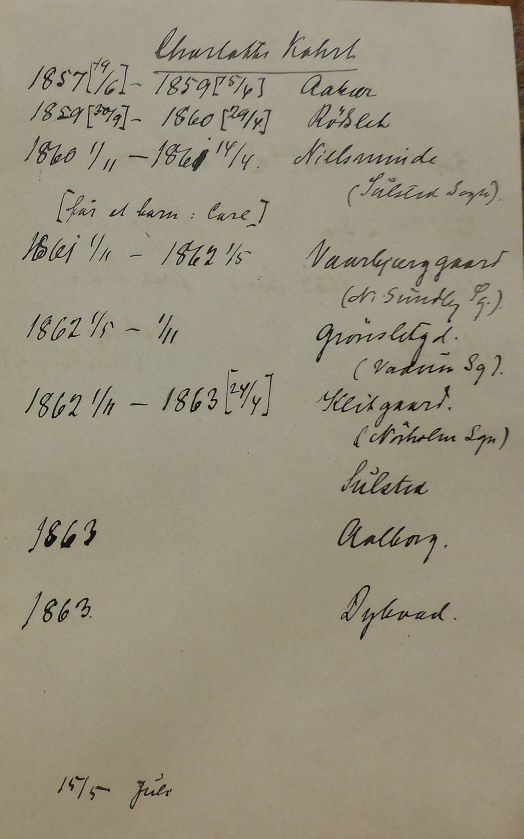 Charlotte Kahrl
1857 [19/6] - 1859 [15/4] Aakær
1859 [30/9] - 1860 [29/4] Rößlet
1860 1/11 - 1861 14/4. Nielsminde
(Sulsted Sogn).
[får et barn : Carl]
1861 1/11 - 1862 1/5 Vaarbjerggaard
(N. Sundby Sg.).
1862 1/5 - 1/11 Grönsletgd.
(Vadum Sg).
1862 1/11 - 1863 [24/4] Klitgaard.
(Nörholm Sgn)
Sulsted
1863 Aalborg.
1863. Dybvad.
15/5 Juli